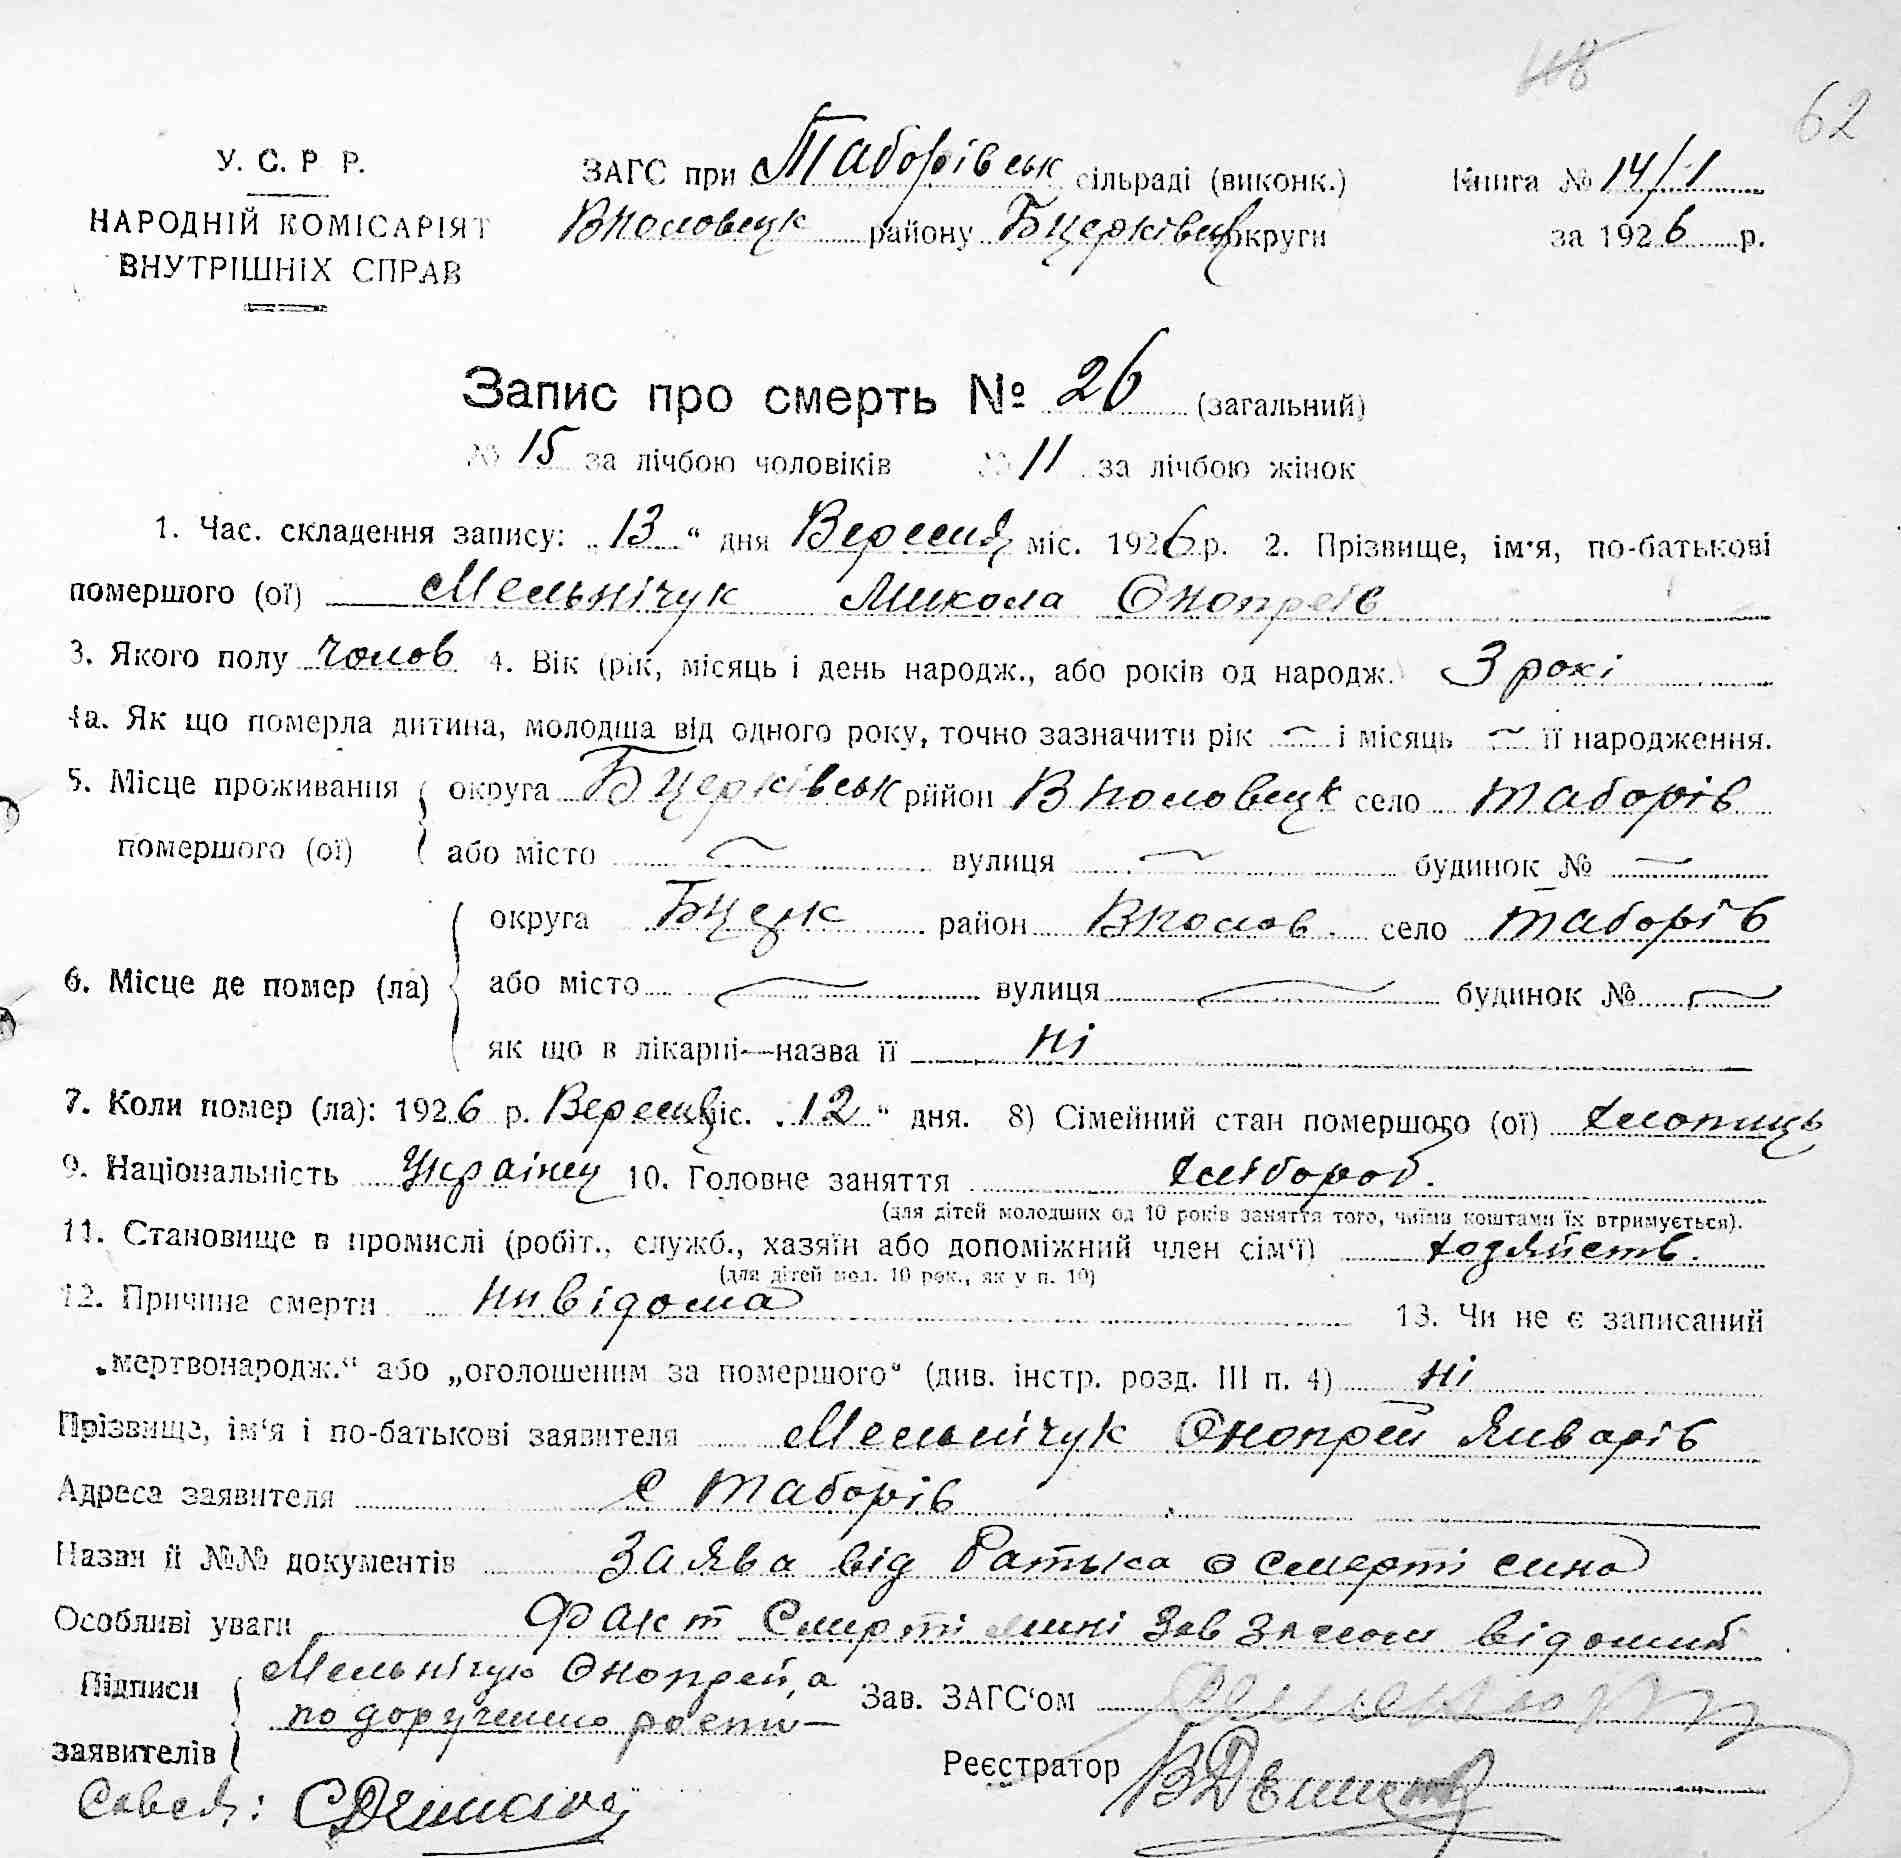 118
62
У. С. Р Р.
НАРОДНІЙ КОМІСАРІЯТ
ВНУТРІШНІХ СПРАВ
ЗАГС при Таборівськ сільраді (виконк.)
Вполовецк району Бцерківськ округи
Книга № 14/1
за 1926 р.
Запис про смерть № 26 (загальний)
№ 15 за лічбою чоловіків № 11 за лічбою жінок
1. Час. складення запису: „13“ дня Вересня міс. 1926 р. 2. Прізвище, ім'я, по-батькові
помершого (ої) Мельнічук Микола Онопреів
3. Якого полу чолов 4. Вік (рік, місяць і день народж., або років од народж.) 3 рокі
4а. Як що померла дитина, молодша від одного року, точно зазначити рік ~ і місяць ~ її народження.
5. Місце проживання округа Бцерківськ район Вполовецк село Таборів
помершого (ої) або місто ~ вулиця ~ будинок № ~
округа Бцерк район Вполов. село Таборів
6. Місце де помер (ла) або місто ~ вулиця ~ будинок № ~
як що в лікарні—назва її ні
7. Коли помер (ла): 1926 р. Вересня міс. „12“ дня. 8) Сімейний стан помершого (ої) хлопиць
9. Національність Украінец 10. Головне заняття хлібороб.
(для дітей молодших од 10 років заняття того, чиїми коштами їх втримується).
11. Становище в промислі (робіт., служб., хазяїн або допоміжний член сім'ї) хозяйств.
(для дітей мол. 10 рок., як у п. 10)
12. Причина смерти ни відома 13. Чи не є записаний
„мертвонародж.“ або „оголошеним за помершого“ (див. інстр. розд. III п. 4) ні
Прізвище, ім'я і по-батькові заявителя Мельнічук Онопрей Январів
Адреса заявителя с Таборів
Назви й №№ документів Заява від батька о смерті сина
Особливі уваги Факт Смерті мині Зав Загсом відомий
Підписи Мельнічук Онопрей, а
по доручению рости—
заявителів
Зав. ЗАГС'ом
Реєстратор